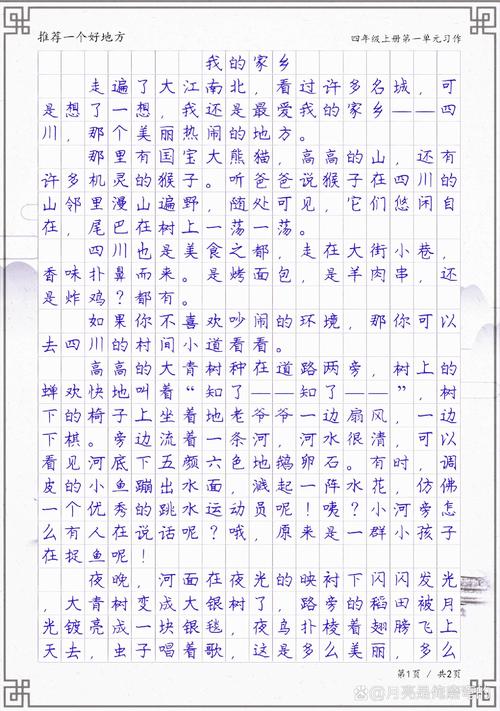 推荐一个好地方
四年级上册第一单元习作
我的家乡
走遍了大江南北，看过许多名城，可
是想了一想，我还是最爱我的家乡——四
川，那个美丽热闹的地方。
那里有国宝大熊猫，高高的山，还有
许多机灵的猴子。听爸爸说猴子在四川的
山邻里漫山遍野，随处可见，它们悠闲自
在，尾巴在树上一荡一荡。
四川也是美食之都，走在大街小巷，
香味扑鼻而来。是烤面包，是羊肉串，还
是炸鸡？都有。
如果你不喜欢吵闹的环境，那你可以
去四川的村间小道看看。
高高的大青树种在道路两旁，树上的
蝉欢快地叫着“知了——知了——”，树
下的椅子上坐着地老爷爷一边扇风，一边
下棋。旁边流着一条河，河水很清，可以
看见河底下五颜六色地鹅卵石。有时，调
皮的小鱼蹦出水面，溅起一阵水花，仿佛
一个优秀的跳水运动员呢！咦？小河旁怎
么有人在说话呢？哦，原来是一群小孩子
在捉鱼呢！
夜晚，河面在夜光的映衬下闪闪发光
，大青树变成大银树了，路旁的稻田被月
光镀亮成一块银毯，夜鸟扑棱着翅膀飞上
天去，虫子唱着歌，这是多么美丽，多么
第1页 / 共2页